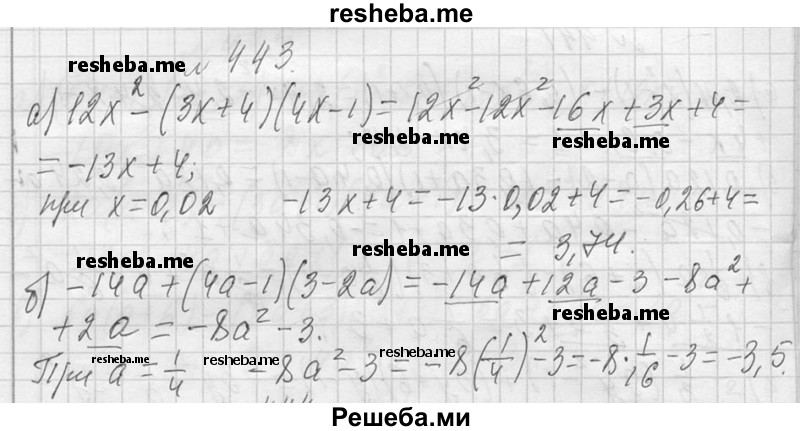 resheba.me
№ 443.
resheba.me
а) 12x² - (3x+4)(4x-1) = 12x² - 12x² - 16x + 3x + 4 =
resheba.me resheba.me
= -13x + 4;
при x = 0,02 -13x + 4 = -13·0,02 + 4 = -0,26 + 4 =
= 3,74.
resheba.me resheba.me
б) -14a + (4a-1)(3-2a) = -14a + 12a - 3 - 8a² +
+ 2a = -8a² - 3.
resheba.me resheba.me resheba.me resheba.me
При a = 1/4 -8a² - 3 = -8(1/4)² - 3 = -8·1/16 - 3 = -3,5.
Решеба.ми